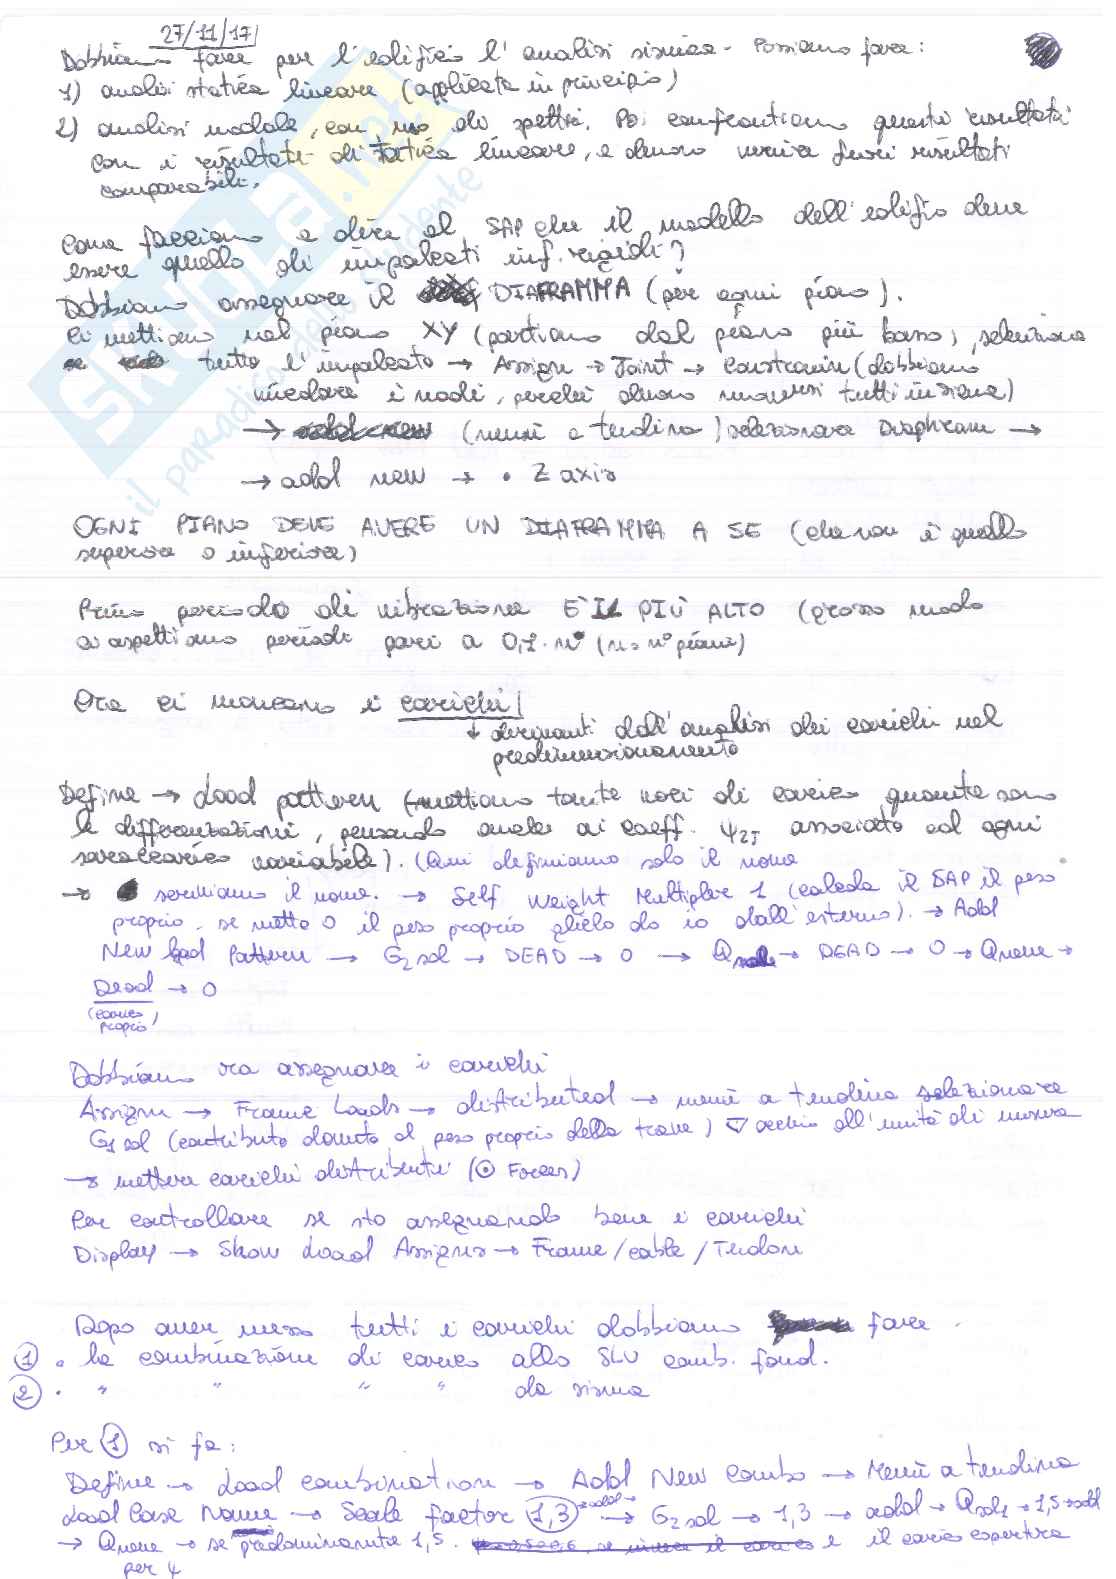 27/11/17
Dobbiamo fare per l'edificio l'analisi sismica. Possiamo fare:
1) analisi statica lineare (applicata in principio)
2) analisi modale, con uso di spettri. Poi confrontiamo questi risultati
con i risultati di statica lineare, e devono venire fuori risultati
comparabili.
Come facciamo a dire al SAP che il modello dell'edificio deve
essere quello di impalcati inf. rigidi?
Dobbiamo assegnare il DIAFRAMMA (per ogni piano).
Ci mettiamo nel piano XY (partiamo dal piano più basso), seleziona
tutto l'impalcato → Assign → Joint → Constrain (dobbiamo
vincolare i nodi, perché devono muoversi tutti insieme)
→ (menù a tendina) selezionare Diaphragm →
→ add new → • Z axis
OGNI PIANO DEVE AVERE UN DIAFRAMMA A SE (che non è quello
superiore o inferiore)
Primo periodo di vibrazione È IL PIÙ ALTO (grosso modo
ci aspettiamo periodi pari a 0,1·n° (n= n° piani)
Ora ci mancano i carichi!
↓ derivanti dall'analisi dei carichi nel
predimensionamento
Define → Load pattern (mettiamo tante voci di carico quante sono
le differentazioni, pensando anche ai coeff. ψ2j associato ad ogni
sovraccarico variabile). (Qui definiamo solo il nome
→ scriviamo il nome. → Self Weight Multiplier 1 (calcola il SAP il peso
proprio, se metto 0 il peso proprio glielo do io dall'esterno). → Add
New Load Pattern → G2 sol → DEAD → 0 → Q → DEAD → 0 → Qneve →
Dead → 0
(carico
proprio)
Dobbiamo ora assegnare i carichi
Assign → Frame Loads → distributed → menù a tendina selezionare
G1 sol (contributo dovuto al peso proprio della trave) ▽ occhio all'unità di misura
→ mettere carichi distribuiti (⊙ Forces)
Per controllare se sto assegnando bene i carichi
Display → Show Load Assigns → Frame/cable/Tendon
Dopo aver messo tutti i carichi dobbiamo fare
① • la combinazione di carico allo SLU comb. fond.
② • " " " " da sisma
Per ① si fa:
Define → Load combination → Add New Combo → Menù a tendina
Load Case Name → Scale factor 1,3 → add → → G2 sol → 1,3 → add → Qsol1 → 1,5 → add
→ Qneve → se predominante 1,5. e il carico copertura
per ψ